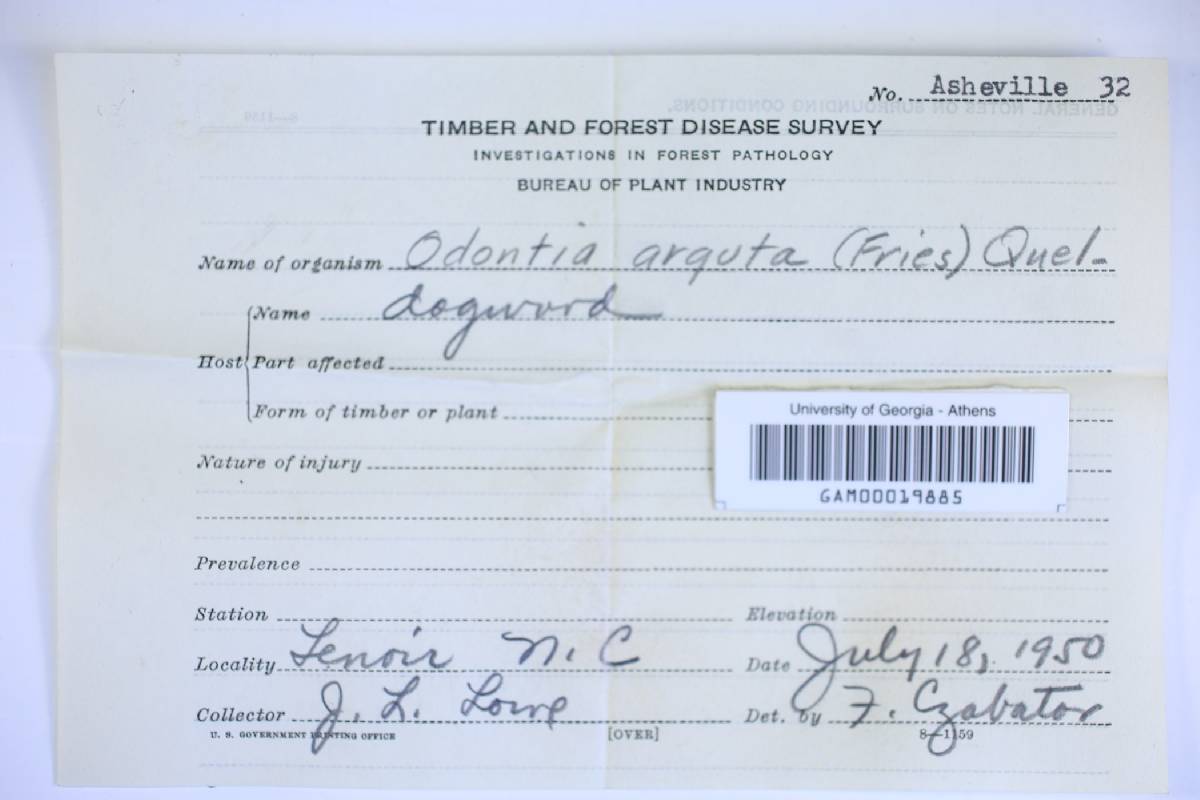 No. Asheville 32
TIMBER AND FOREST DISEASE SURVEY
INVESTIGATIONS IN FOREST PATHOLOGY
BUREAU OF PLANT INDUSTRY
Name of organism Odontia arguta (Fries) Quel-
Name dogwood
Host Part affected
Form of timber or plant
University of Georgia - Athens
GAM00019885
Nature of injury
Prevalence
Station Elevation
Locality Lenoir N.C Date July 18, 1950
Collector J. L. Lowe Det. by F. Czabator
U. S. GOVERNMENT PRINTING OFFICE [OVER] 8—1159